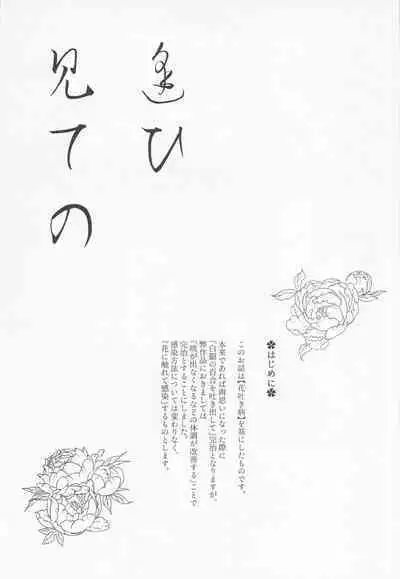 逢ひ
見ての
はじめに
このお話は【花吐き病】を基にしたものです。
本来であれば両思いになった際に
「白銀の百合を吐き出して」完治となりますが、
弊作品におきましては
「咳が出なくなるなどの体調が改善する」ことで
完治とすることにしました。
感染方法については変わりなく、
『花に触れて感染』するものとします。